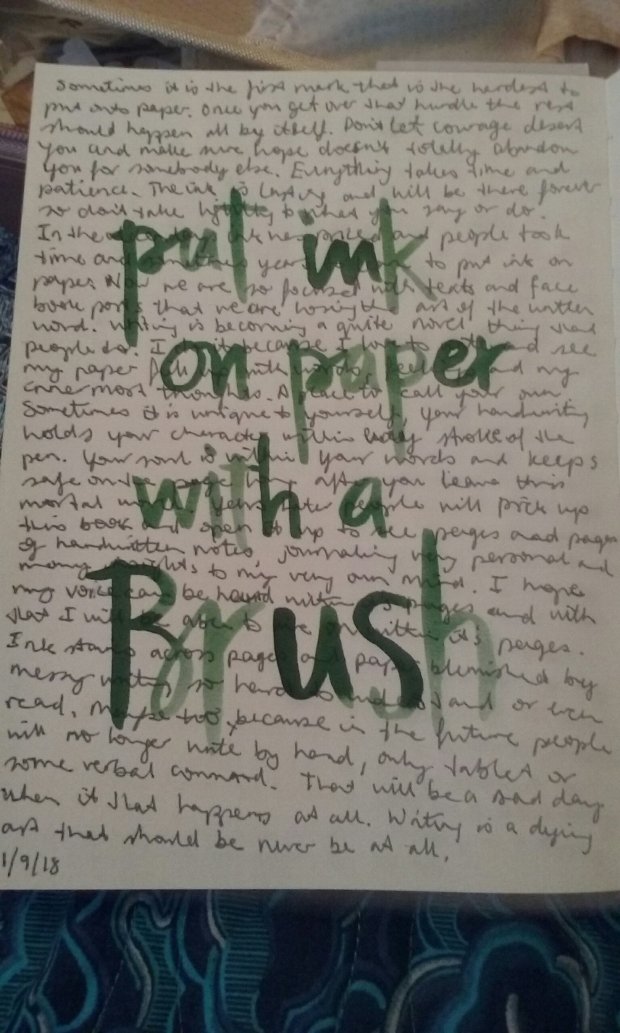 Sometimes it is the first mark that is the hardest to
put onto paper. Once you get over that hurdle the rest
should happen all by itself. Don't let courage desert
you and make sure hope doesn't totally abandon
you for somebody else. Everything takes time and
patience. The ink is lasting and will be there forever
so don't take lightly to what you say or do.
In the and people took
time and years to put ink on
paper. Now we are so focused with texts and face
book posts that we are losing the art of the written
word. Writing is becoming a quite novel thing that
people do. I because I love to and see
my paper with words and my
inner most thoughts. A place to call your own.
Sometimes it is unique to yourself, your handwriting
holds your character within every stroke of the
pen. Your soul is within your words and keeps
safe on the page long after you leave this
mortal world. Years later people will pick up
this book and open it up to see pages and pages
of handwritten notes, journaling very personal and
many insights to my very own mind. I hope
my voice can be heard within its pages and with
that I will be able to live on within its pages.
Ink stains across pages and paper blemished by
messy writing so hard to understand or even
read. Maybe too, because in the future people
will no longer write by hand, only tablets or
some verbal command. That will be a sad day
when it that happens at all. Writing is a dying
art that should be never be at all.
1/9/18
put ink
on paper
with a
Brush